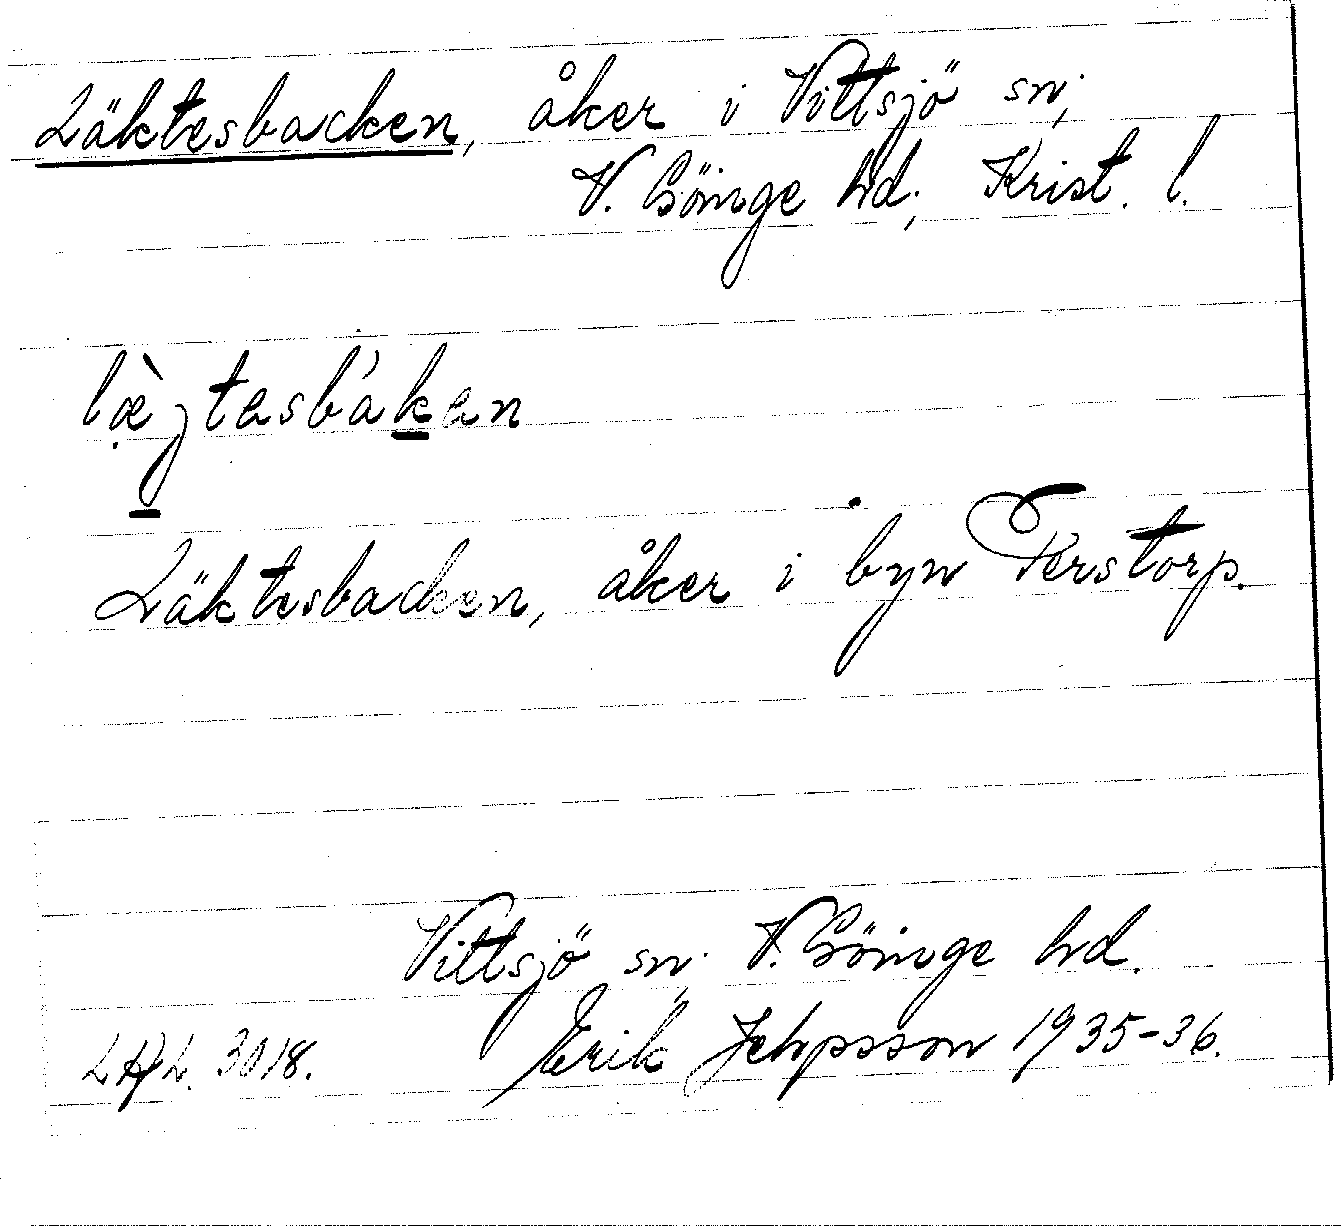 Läktesbacken, åker i Vittsjö sn;
V. Göinge hd; Krist. l.
Läktesbacken, åker i byn Perstorp.
Vittsjö sn; V. Göinge hd.
3018. Erik 1935-36.